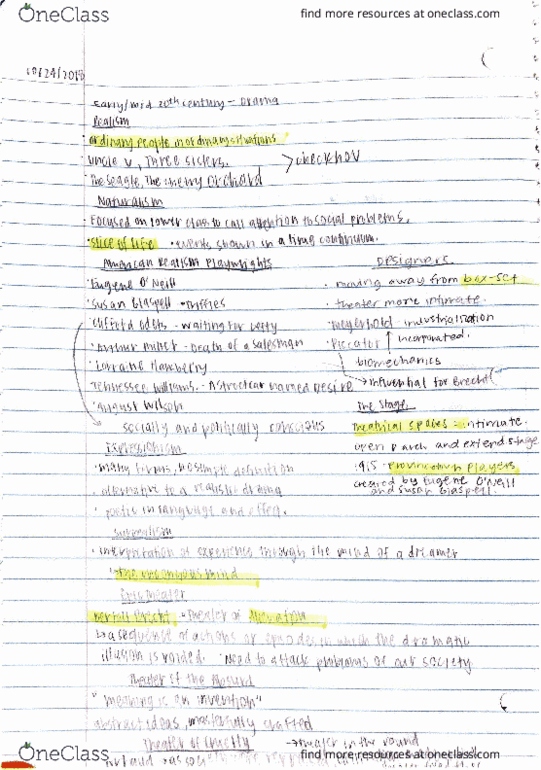 OneClass
find more resources at oneclass.com
early/mid 20th century - Drama
Realism
ordinary people in ordinary situations
Uncle V, Three Sisters.
> checkhov
The Seagle, The cherry orchard
Naturalism
Focused on lower class to call attention to social problems.
slice of life • events shown in a time continuum.
American Realism Playwrights
Eugene O'Neill
Susan Glaspell • Trifles
Clifford Odets - Waiting for Lefty
Arthur Miller - Death of a salesman
Lorraine Hansberry
Tennessee Williams - A
named Desire
August Wilson
socially and politically conscious
Designers
• moving away from box-set
• theater more intimate.
industrialization
incorporated.
biomechanics
→ influential for Brecht
The Stage
Theatrical spaces - intimate.
open
and extend stage
created by Eugene O'Neill
and Susan Glaspell.
Expressionism
• many forms, no
definition
• alternative to a realistic
• poetic in language and effect.
Surrealism
• interpretation of experience through the mind of a dreamer
Epic theater
Bertolt Brecht • Theater of
↳ a sequence of actions or episodes in which the dramatic
illusion is
Need to attack problems of our society
Theater of the Absurd
"meaning is an invention"
abstract ideas, masterfully crafted
Theater of Cruelty
→
in the round
OneClass
find more resources at oneclass.com